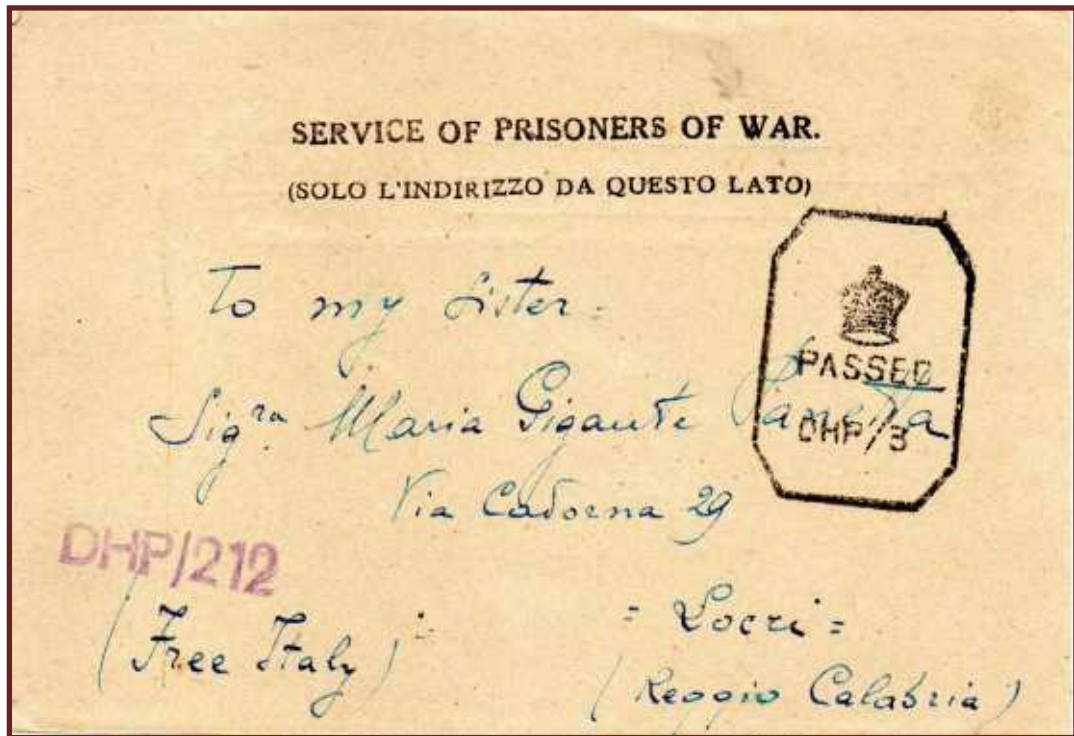 SERVICE OF PRISONERS OF WAR.
(SOLO L'INDIRIZZO DA QUESTO LATO)
To my sister =
Sig.ra Maria Gigante
PASSED
DHP/3
Via Cadorna 29
DHP/212
= Locri =
(Free Italy)
(Reggio Calabria)